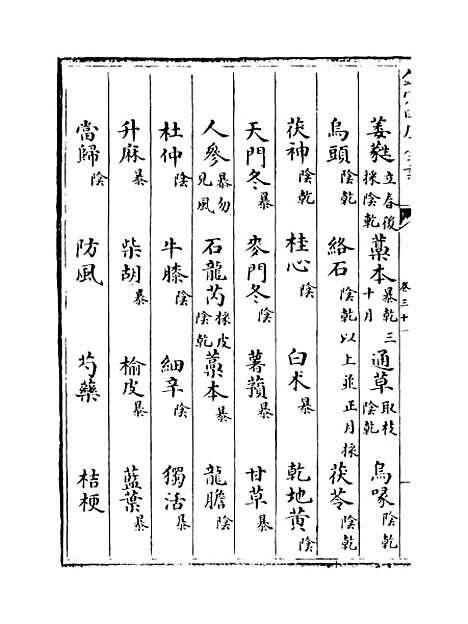 卷三十一
萎蕤立春後採陰乾 藁本暴乾三十月 通草取枝陰乾 烏喙陰乾
烏頭陰乾 絡石陰乾以上並正月採 茯苓陰乾
茯神陰乾 桂心陰 白术暴 乾地黄陰
天門冬暴 麥門冬陰 薯蕷暴 甘草暴
人參暴勿見風 石龍芮採皮陰乾 藁本暴 龍膽陰
杜仲陰 牛膝陰 細辛陰 獨活暴
升麻暴 柴胡暴 榆皮暴 藍葉暴
當歸陰 防風 芍藥 桔梗